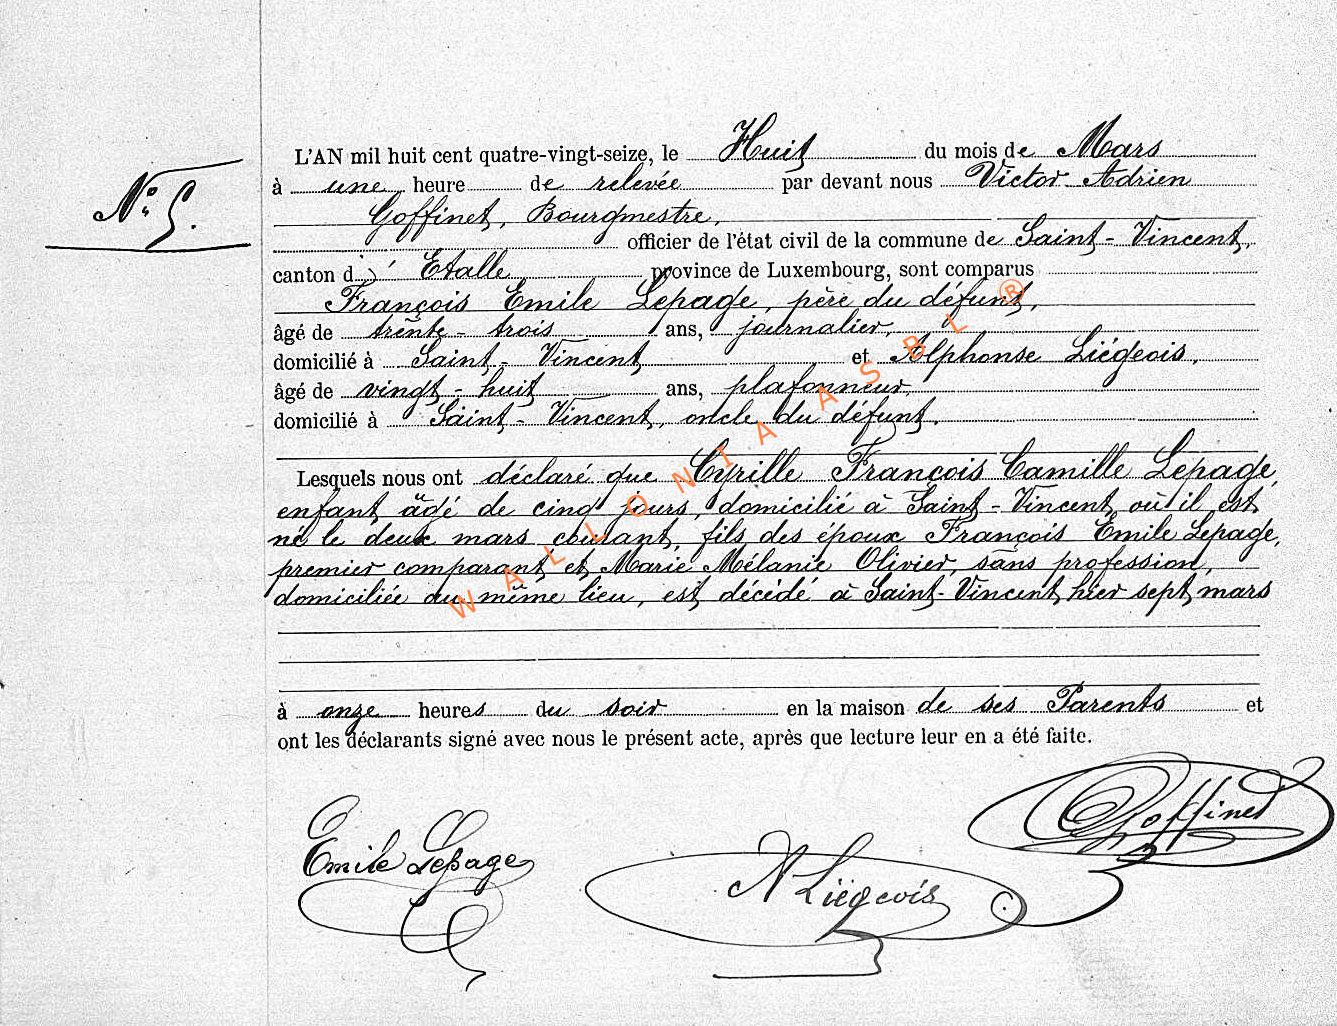 L'AN mil huit cent quatre-vingt-seize, le Huit du mois de Mars
N° 5.
à une heure de relevée par devant nous Victor Adrien
Goffinet, Bourgmestre,
officier de l'état civil de la commune de Saint-Vincent,
canton d' Etalle province de Luxembourg, sont comparus
François Emile Lepage, père du défunt,
âgé de trente-trois ans, journalier,
domicilié à Saint-Vincent et Alphonse Liégeois,
âgé de vingt-huit ans, plafonneur,
domicilié à Saint-Vincent, oncle du défunt.
Lesquels nous ont déclaré que Cyrille François Camille Lepage,
enfant âgé de cinq jours, domicilié à Saint-Vincent où il est
né le deux mars courant, fils des époux François Emile Lepage,
premier comparant et Marie Mélanie Olivier, sans profession,
domiciliée au même lieu, est décédé à Saint-Vincent hier sept mars
à onze heures du soir en la maison de ses Parents et
ont les déclarants signé avec nous le présent acte, après que lecture leur en a été faite.
Goffinet
Emile Lepage
A Liégeois
WALLONIA ASBL ®